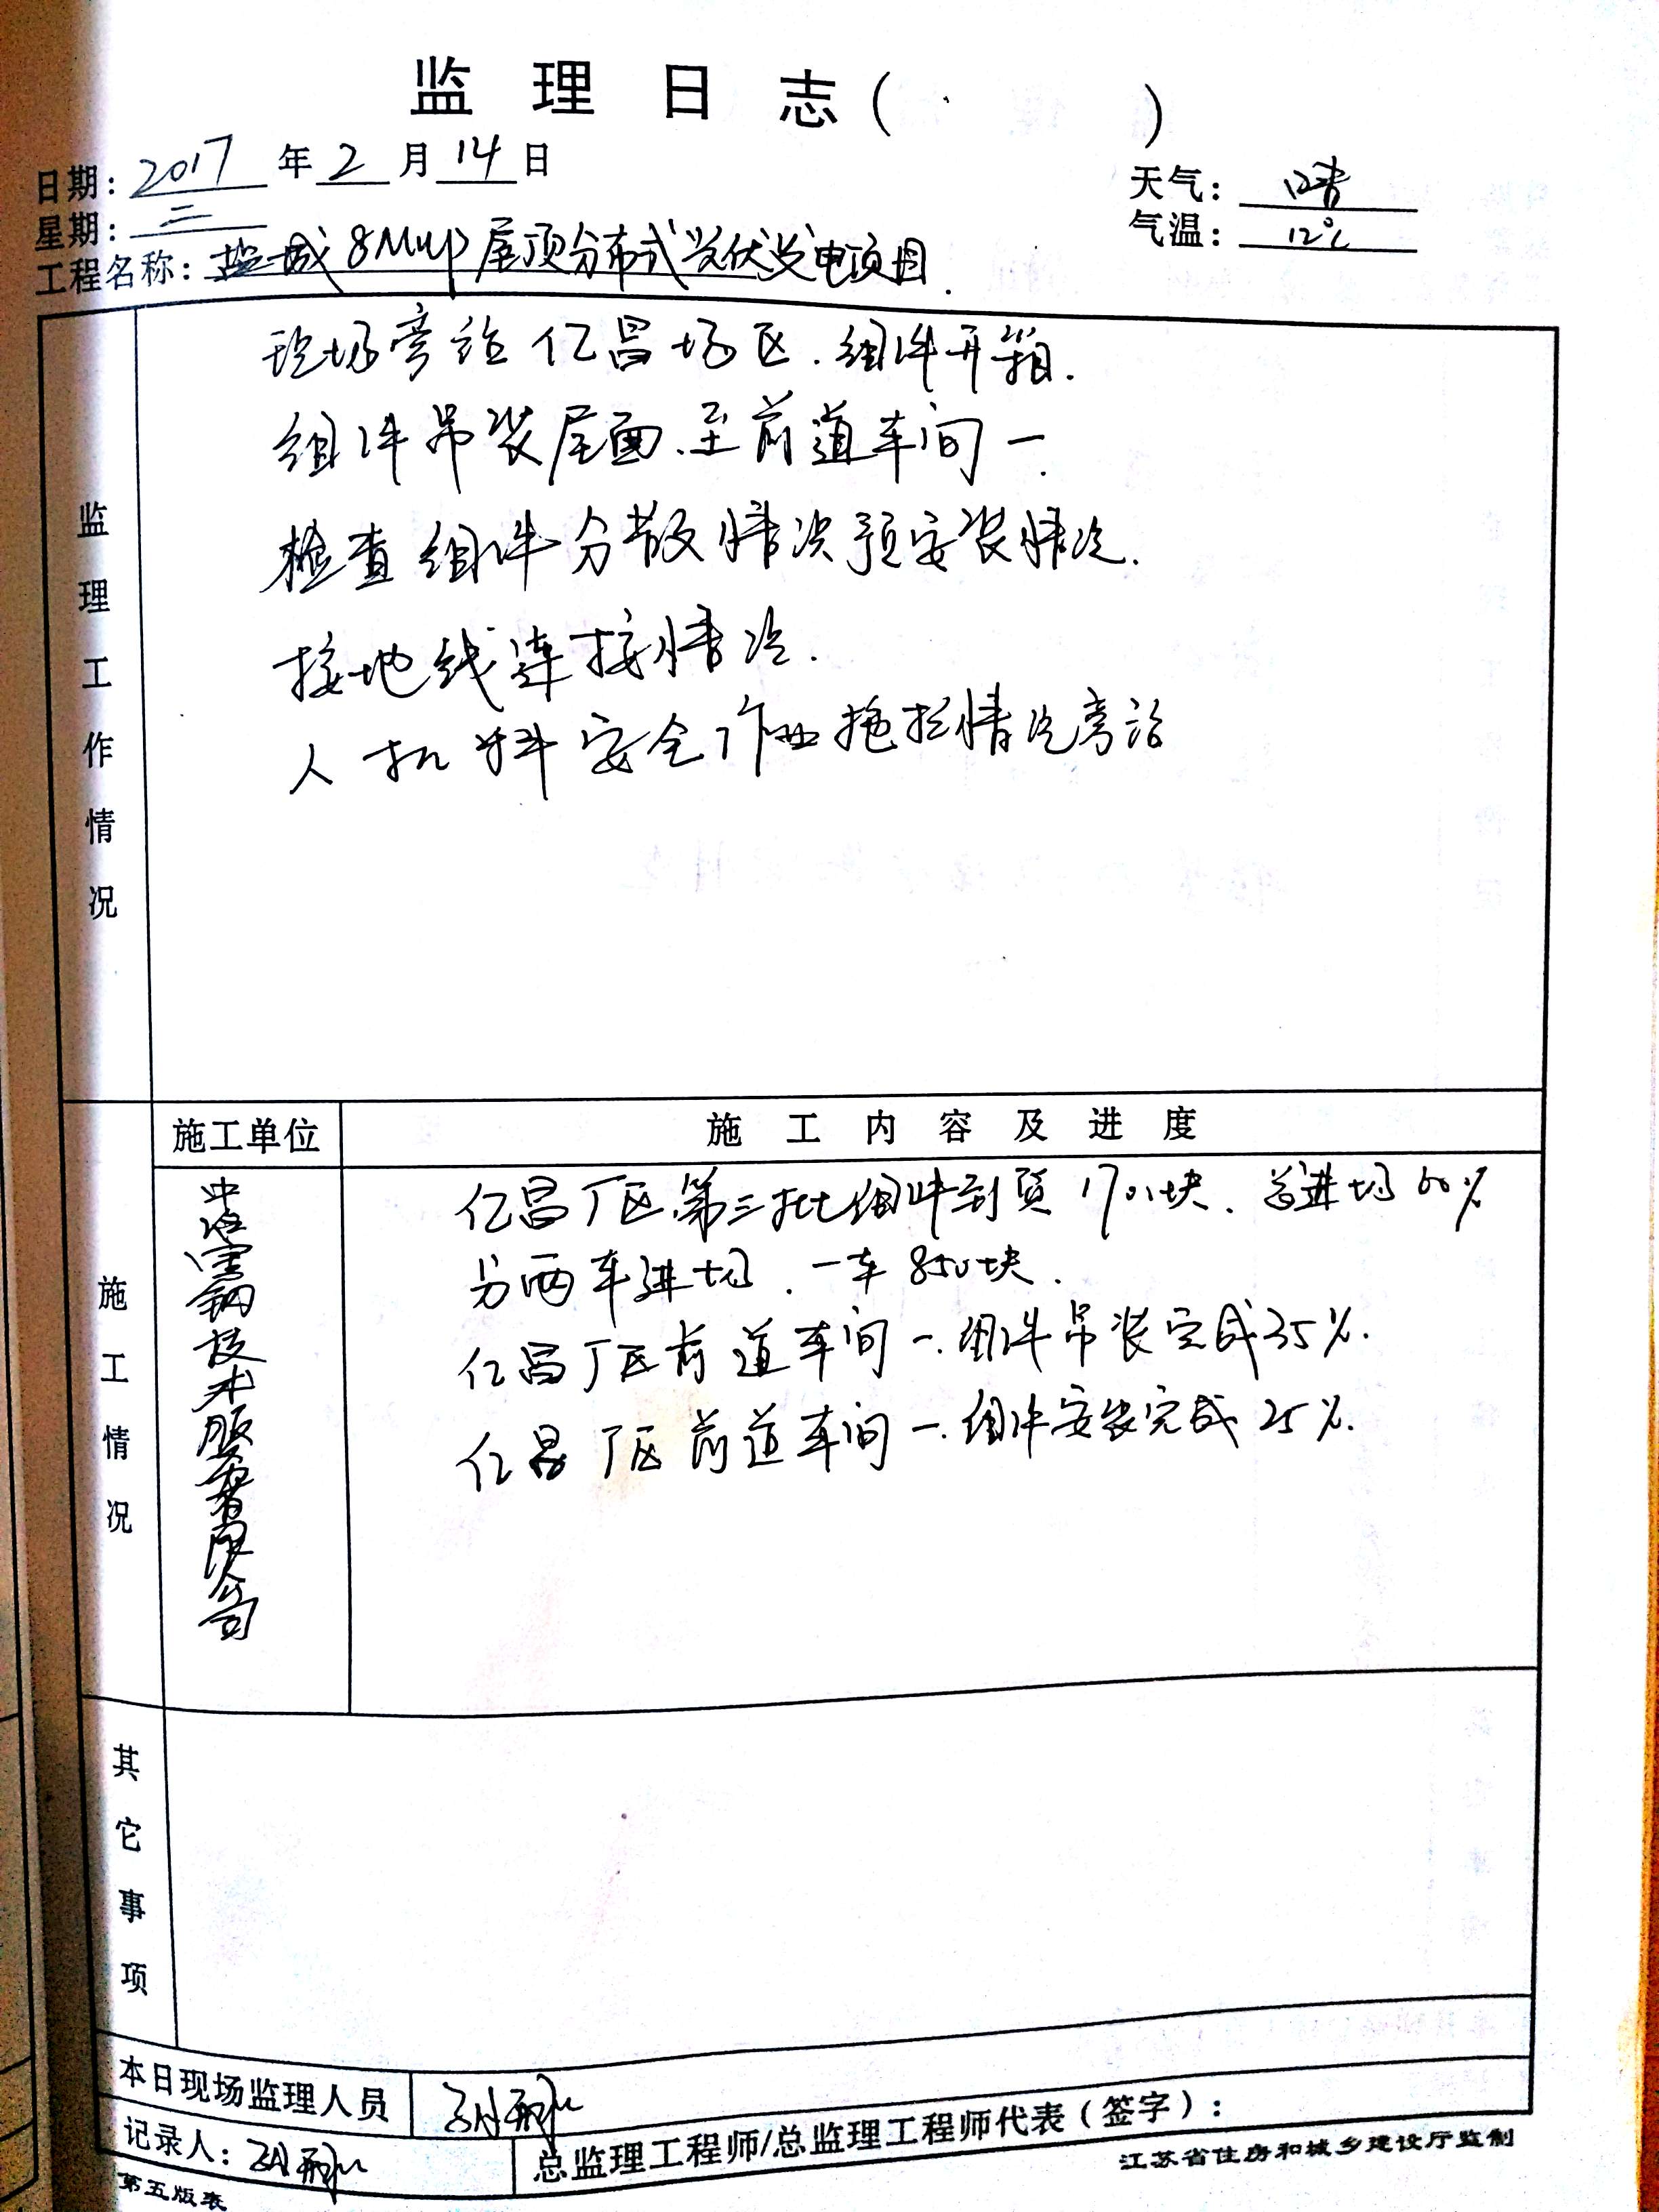 监理日志( )
日期：2017年2月14日
天气：晴
星期：二
气温：12℃
工程名称：盐城8MWP屋顶分布式光伏发电项目.
监理工作情况
现场旁站亿昌场区.组件开箱.
组件吊装屋面.至前道车间一.
检查组件分散情况预安装情况.
接地线连接情况.
人机料安全作业拖拉情况旁站
施工情况
施工单位
施工内容及进度
技术服务有限公司
亿昌厂区第三批组件到货1700块.总进场60%
分两车进场.一车850块.
亿昌厂区前道车间一.组件吊装完成35%.
亿昌厂区前道车间一.组件安装完成25%.
其它事项
本日现场监理人员
记录人：
总监理工程师/总监理工程师代表(签字)：
第五版表
江苏省住房和城乡建设厅监制